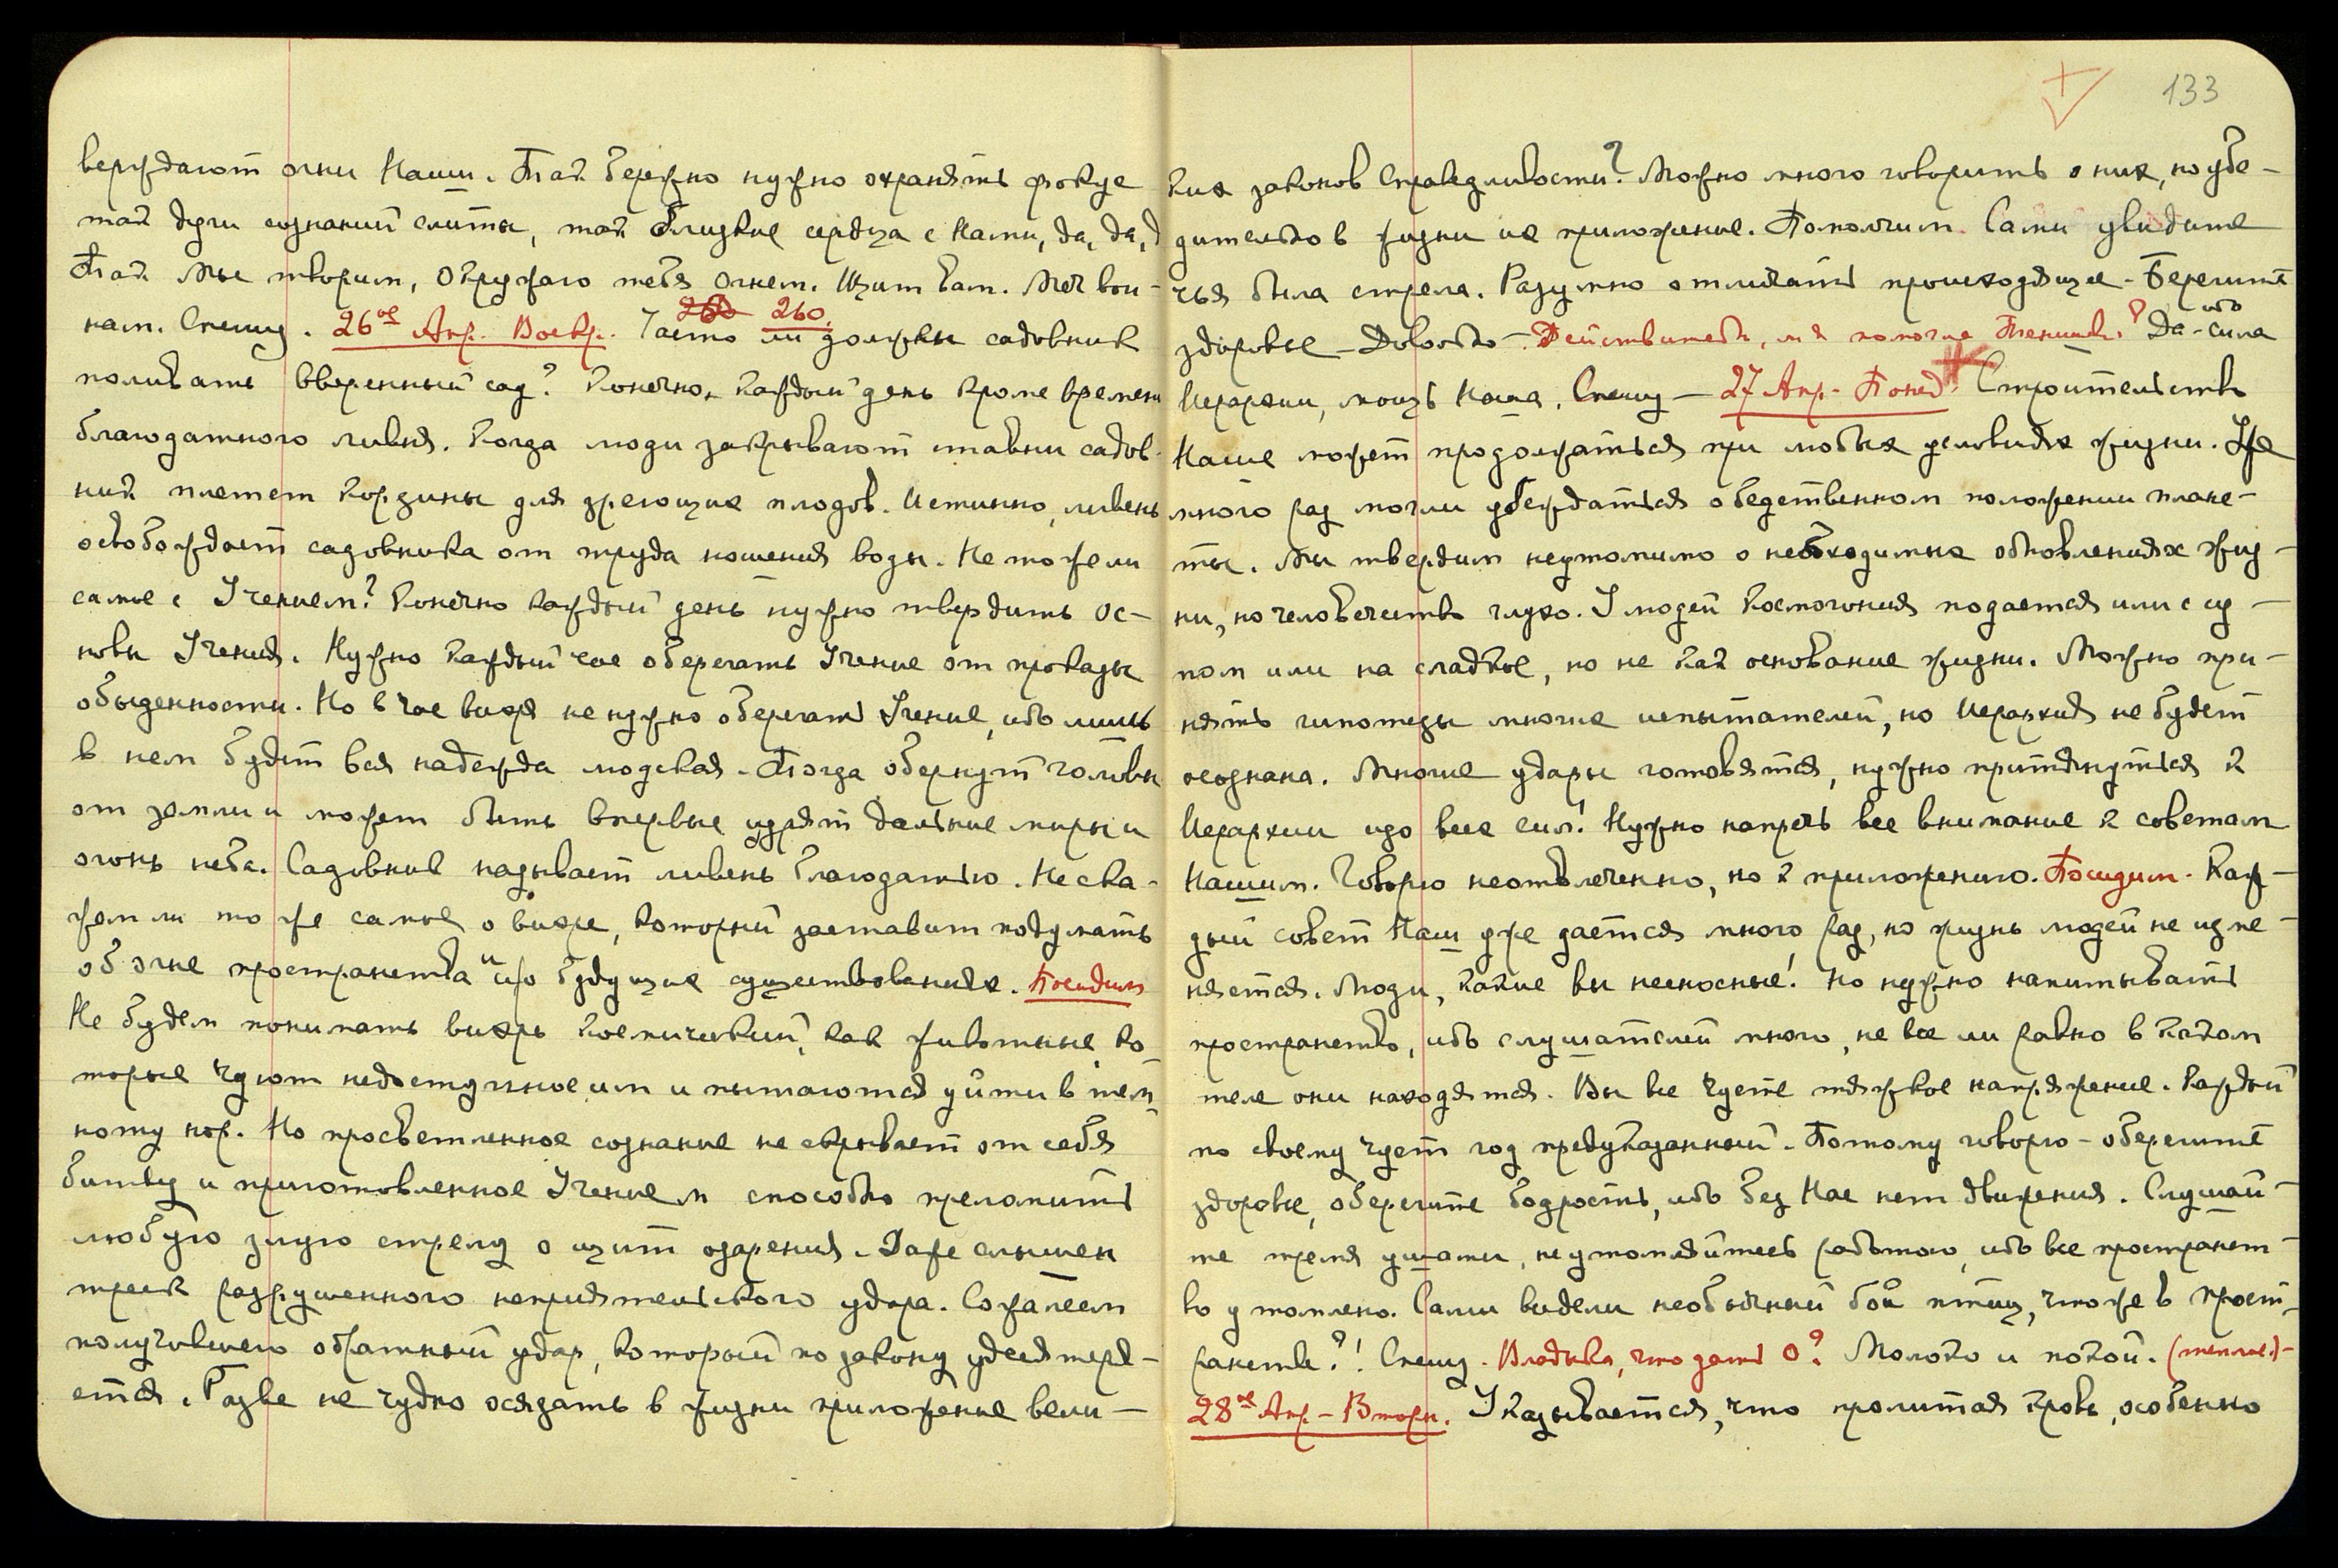 верждают огни Наши. Так бережно нужно охранять фокус
так духи сознаний слиты, так близкие сердца с Нами, да, да, д
Так Мы творим, Окружаю тебя Огнем. Щит вам. Меч вои-
нам. Спешу. 26ое Апр. Воскр. 260. Часто ли должен садовник
поливать вверенный сад? Конечно, каждый день кроме времени
благодатного ливня. Когда люди закрывают ставни садов-
ник плетет корзины для зреющих плодов. Истинно, ливень
освобождает садовника от труда ношения воды. Не то же ли
самое с Учением? Конечно каждый день нужно твердить ос-
новы Учения. Нужно каждый час оберегать Учение от проказы
обыденности. Но в час вихря не нужно оберегать Учение, ибо лишь
в нем будет вся надежда людская. Тогда обернут головы
от земли и может быть впервые узрят дальние миры и
огонь неба. Садовник называет ливень благодатью. Не ска-
жем ли то же самое о вихре, который заставит подумать
об огне пространства и о будущих существованиях. Посидим
Не будем понимать вихрь космический, как животные, ко-
торые чуют недоступное им и пытаются уйти в тем-
ноту нор. Но просветленное сознание не скрывает от себя
битву и приготовленное Учением способно преломить
любую злую стрелу о щит озарения. Даже слышен
треск разрушенного неприятельского удара. Сожалеем
получившего обратный удар, который по закону удесятеря-
ется. Разве не чудно осязать в жизни приложение вели-
133
ких законов Справедливости? Можно много говорить о них, но убе-
дительно в жизни их приложение. Помолчим. Сами увидите
чья была стрела. Разумно отличать происходящее. Берегите
здоровье – Довольно – Действительно, м. я помогла Теншик.? Да – ибо сила
Иерархии, мощь Наша. Спешу – 27 Апр. Понед. Строительство
Наше может продолжаться при любых условиях жизни. Уже
много раз могли убеждаться о бедственном положении плане-
ты. Мы твердим неутомимо о необходимых обновлениях жиз-
ни, но человечество глухо. У людей космогония подается или с су-
пом или на сладкое, но не как основание жизни. Можно при-
нять гипотезы многих испытателей, но Иерархия не будет
осознана. Многие удары готовятся, нужно притянуться к
Иерархии изо всех сил! Нужно напречь все внимание к советам
Нашим. Говорю неотвлеченно, но к приложению. Посидим. Каж-
дый совет Наш уже дается много раз, но жизнь людей не изме-
няется. Люди, какие вы несносные! Но нужно напитывать
пространство, ибо слушателей много, не все ли равно в каком
теле они находятся. Вы все чуете тяжкое напряжение. Каждый
по своему чует год предуказанный. Потому говорю – оберегите
здоровье, оберегите бодрость, ибо без Нас нет движения. Слушай-
те тремя ушами, не утомляйтесь работою, ибо все пространст-
во утомлено. Сами видели необычный бой птиц, что же в прост-
ранстве?! Спешу. Владыка, что дать О? Молоко и покой. (теплое.) –
28ое Апр – Вторн. Указывается, что пролитая кровь, особенно